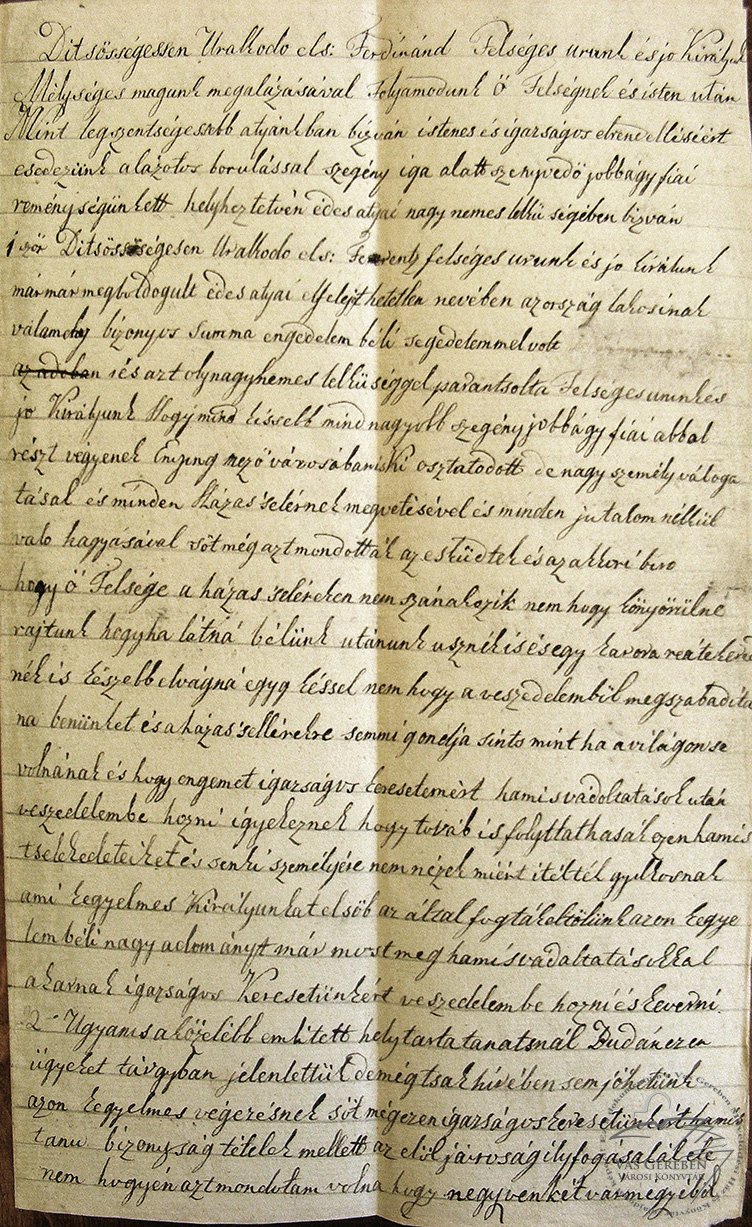 Ditsösségessen Uralkodo els: Ferdinánd Felséges urunk és jo Királyunk
Mélységes magunk megalázásával Folyamodunk Ő Felségnek és isten után
Mint legszentségessebb atyánkban bizván istenes és igazságos elrendelléséért
esedezünk alázotos borulással szegény iga alatt szenyvedö jobbágy fiai
reménységünkett helyheztetvén édes atyai nagy nemes lelkü ségében bizván
1 ször Ditsösségesen Uralkodo els: Ferentz felséges urunk és jo királunk
már már megboldogult édes atyai elfelejthetetlen nevében az ország lakosinak
válamely bizonyos Summa engedelem béli segedelemmel volt
az adoban és azt oly nagy nemes lelkü séggel parantsolta Felséges urunk és
jo Királyunk Hogy mind kissebb mind nagyobb szegény jobbágy fiai abbal
részt vegyenek Enying mezö városában is ki osztatodott de nagy személy váloga
tásal és minden Házas selérnek megvetésével és minden jutalom nélkül
valo hagyásával söt még azt mondották az esküdtek és az akkori biro
hogy ő Felsége a házas seléreken nem szánakozik nem hogy könyörülne
rajtunk hogyha látná bélünk utánunk usznék is és egy karora reá tekere
nék is készebb elvágná egy késsel nem hogy a veszedelemből megszabadita
na benünket és a házas sellérekre semmi gondja sints mint ha a világon se
volnának és hogy engemet igazságos keresetemért hamis vádoltatások után
veszedelembe hozni igyekeznek hogy továb is folyttathasák ezen hamis
tselekedeteiket és senki személyére nem nézek miért itélték gyilkosnak
ami kegyelmes Királyunkat elsöb az által fogták el tölünk azon kegye
lem béli nagy adományt már most meg hamis vadaltatásokkal
akarnak igazságos Keresetünkért veszedelembe hozni és keverni.
2 Ugyanis a közelébb emlitett helytarta tanatsnál Budán ezen
ügyeket tárgyban jelenlettük de még tsak hivében sem jöhetünk
azon kegyelmes végezésnek söt még ezen igazságos keresetünkért hamis
tanu bizonyság tételek mellett az elöl jároság ily fogásalál éle
nem hogy én azt mondotam volna hogy negyven két vármegyéből
VAS GEREBEN
VÁROSI KÖNYVTÁR